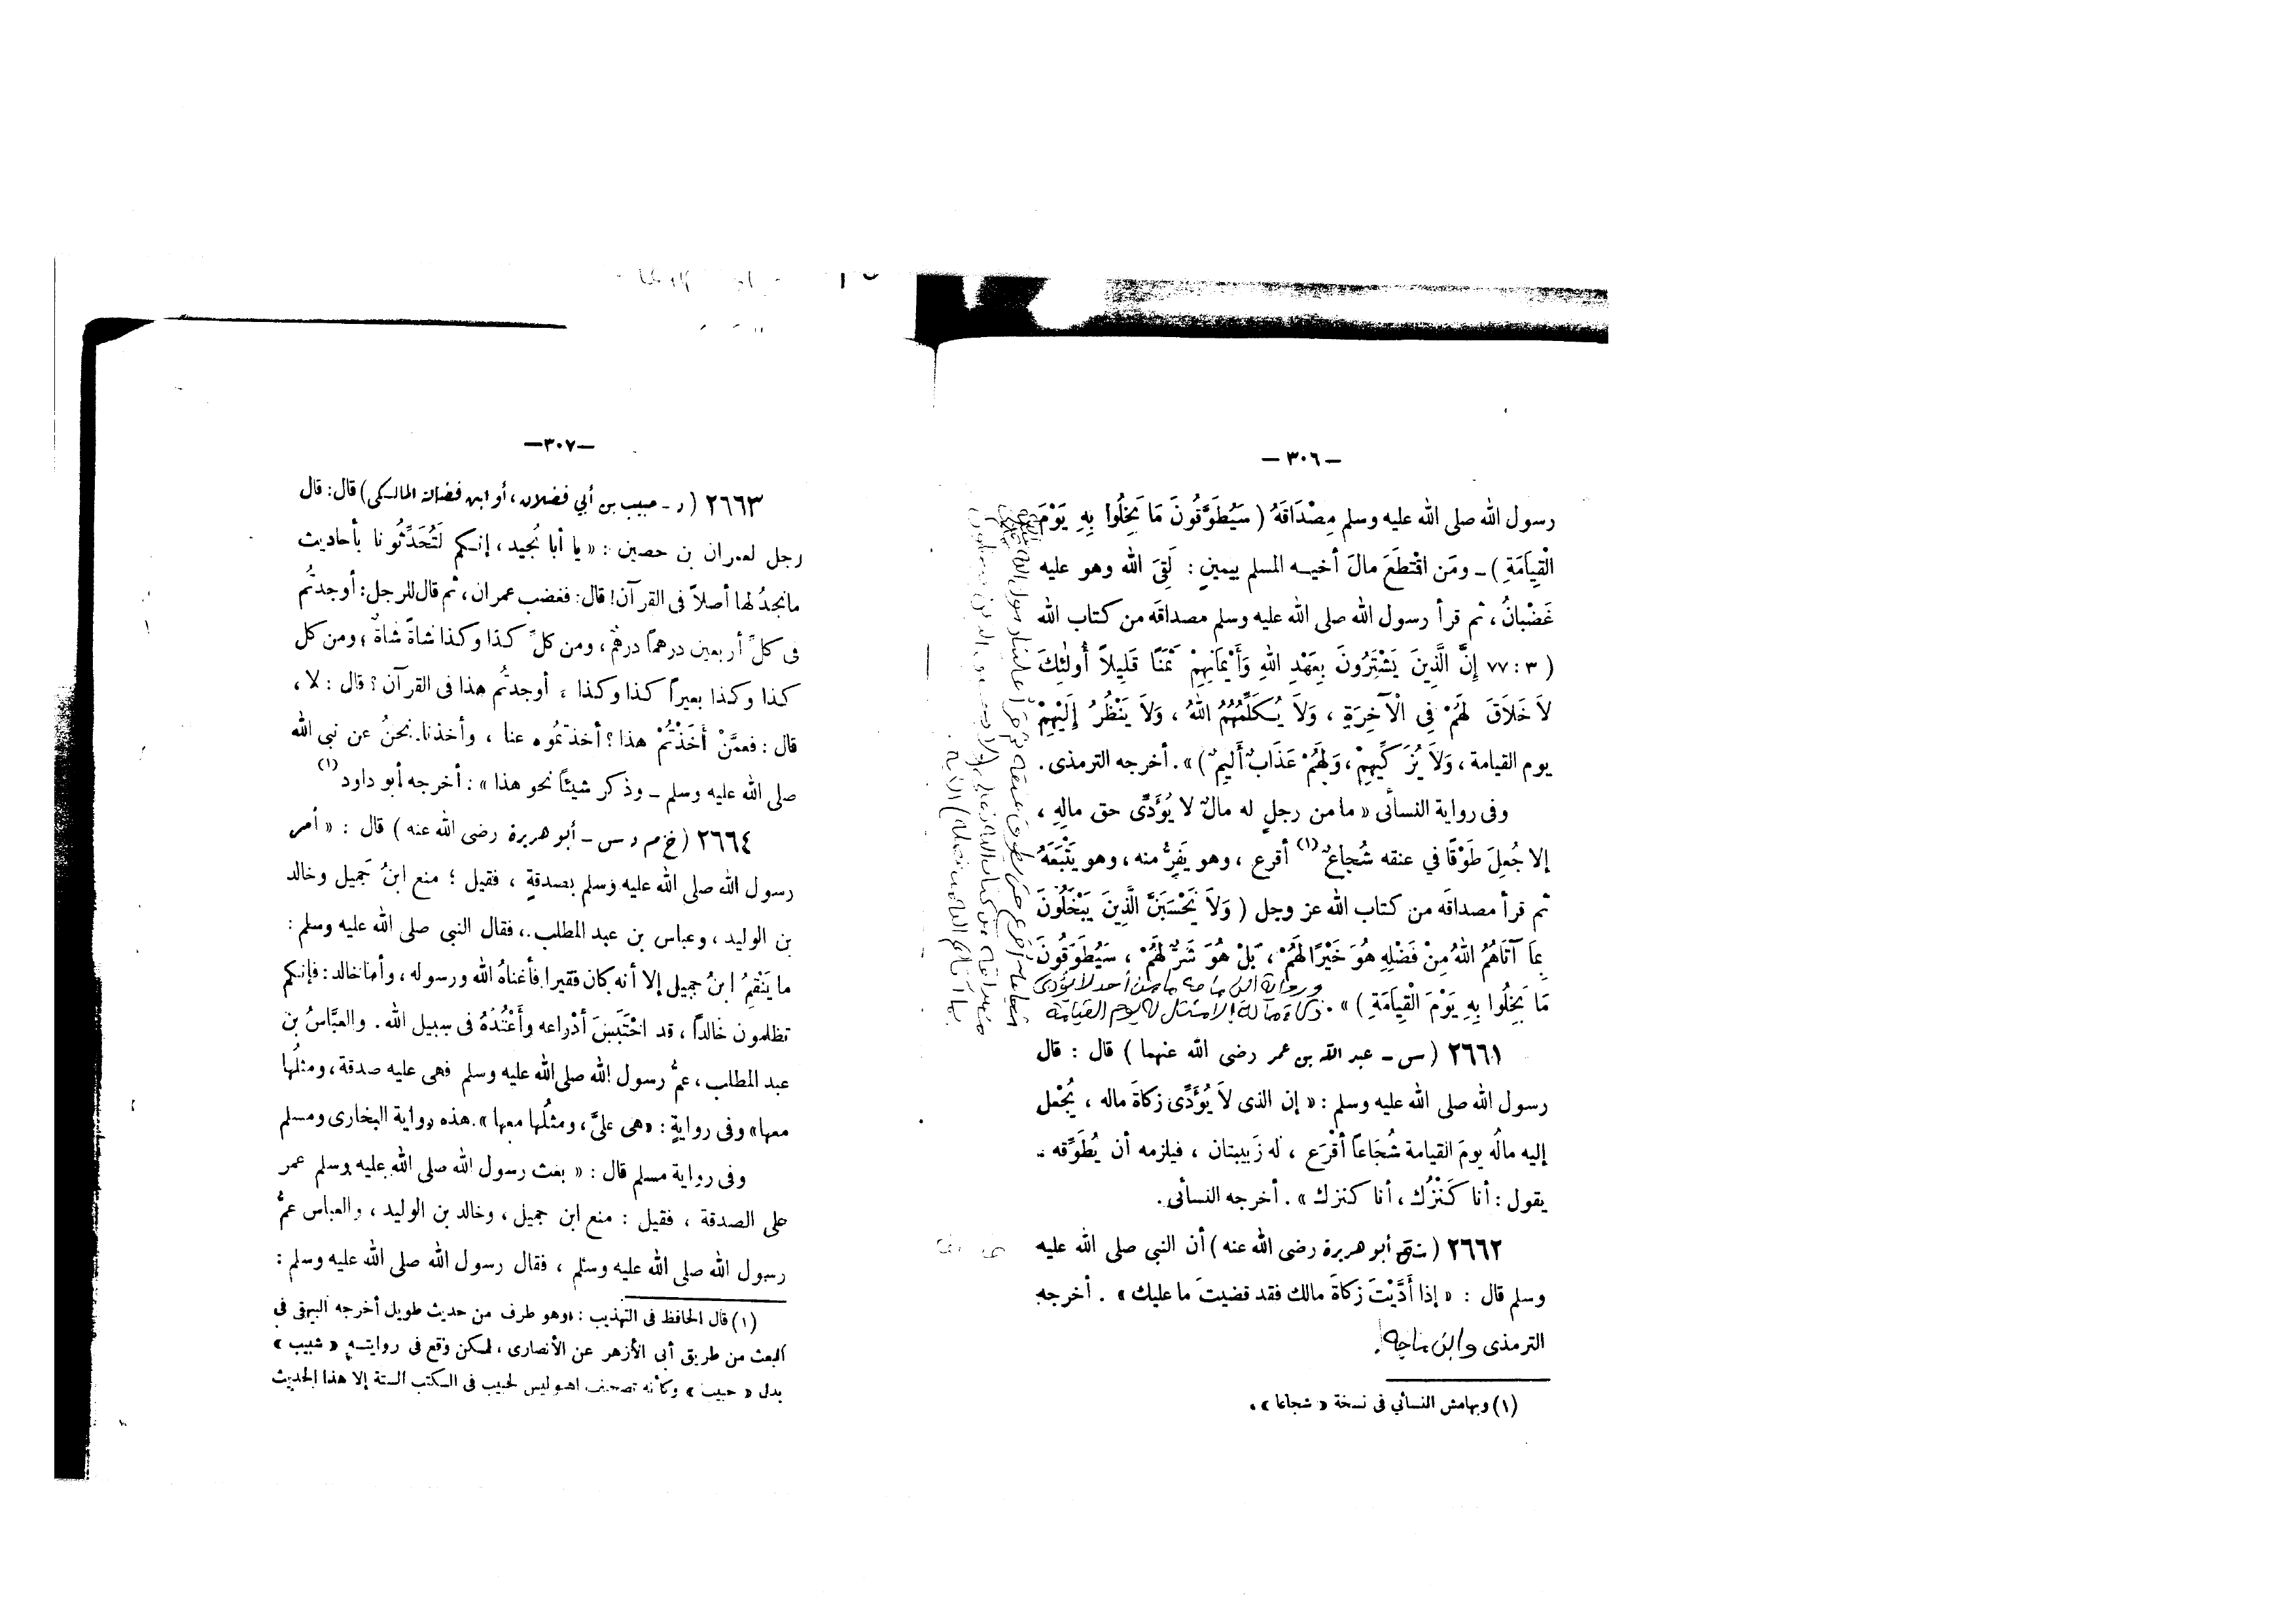 — ٣٠٦ —
رسول الله صلى الله عليه وسلم مِصْدَاقَهُ ( سَيُطَوَّقُونَ مَا بَخِلُوا بِهِ يَوْمَ
الْقِيَامَةِ ) ــ ومَن اقْتطَعَ مالَ أخيـه المسلم بيمينٍ : لَقِىَ الله وهو عليه
غَضْبانُ ، ثم قرأ رسول الله صلى الله عليه وسلم مصداقَه من كتاب الله
( ٣ : ٧٧ إِنَّ الَّذِينَ يَشْتَرُونَ بِعَهْدِ اللهِ وَأَيْمَانِهِمْ ثَمَنًا قَلِيلاً أُولٰئِكَ
لاَ خَلاَقَ لَهُمْ فِى الْآخِرَةِ ، وَلاَ يُكَلِّمُهُمُ اللهُ ، وَلاَ يَنْظُرُ إِلَيْهِمْ
يوم القيامة ، وَلاَ يُزَكِّيهِمْ ، وَلَهُمْ عَذَابٌ أَلِيمٌ ) » . أخرجه الترمذى .
وفى رواية النسأئى « ما من رجلٍ له مالٌ لا يُؤَدِّى حق مالِهِ ،
إلا جُعِلَ طَوْقًا في عنقه شُجاعٌ (١) أقرع ، وهو يَفِرُّ منه ، وهو يَتْبَعَهُ
ثم قرأ مصداقَه من كتاب الله عز وجل ( وَلاَ تَحْسَبَنَّ الَّذِينَ يَبْخَلُونَ
بِمَا آتَاهُمُ اللهُ مِنْ فَضْلِهِ هُوَ خَيْرًا لَهُمْ ، بَلْ هُوَ شَرٌّ لَهُمْ ، سَيُطَوَّقُونَ
ورواية ابن ماجه ما من أحد لا يؤدى
مَا بَخِلُوا بِهِ يَوْمَ الْقِيَامَةِ ) » . زكاة ماله إلا مثل له يوم القيامة
٢٦٦١ ( س ــ عبد الله بن عمر رضى الله عنهما ) قال : قال
رسول الله صلى الله عليه وسلم : « إن الذى لاَ يُؤَدِّى زكاةَ ماله ، يُجْعَل
إليه مالُه يومَ القيامة شُجَاعاً أقْرَع ، له زَبيبتان ، فيلزمه أن يُطَوِّقه ــ
يقول : أنا كَنْزُك ، أنا كنزك » . أخرجه النسأئى .
٢٦٦٢ ( أبو هريرة رضى الله عنه ) أن النبى صلى الله عليه
وسلم قال : « إذا أَدَّيْتَ زكاةَ مالك فقد قضيتَ ما عليك » . أخرجه
الترمذى وابن ماجه .
(١) وبهامش النسأئي فى نسخة « شجاعا » .
—٣٠٧—
٢٦٦٣ ( د ــ حبيب بن أبي فضلان ، أو ابن فضالة المالكى ) قال : قال
رجل لعمران بن حصين : « يا أبا نُجيد ، إنـكم لَتُحَدِّثُونا بأحاديث
مانجدُ لها أصلاً فى القرآن ! قال : فغضب عمران ، ثم قال للرجل : أوجدتُم
فى كلِّ أربعين درهمًا درهمٌ ، ومن كلِّ كذا وكذا شاةً شاةٌ ؛ ومن كل
كذا وكذا بعيراً كذا وكذا ، أوجدتُم هذا فى القرآن ؟ قال : لا ،
قال : فعمَّنْ أَخَذْتُمْ هذا ؟ أخذتمُوه عنا ، وأخذنا نحنُ عن نبى الله
صلى الله عليه وسلم ــ وذكر شيئاً نحو هذا » : أخرجه أبو داود (١)
٢٦٦٤ ( خ م د س ــ أبو هريرة رضى الله عنه ) قال : « أمر
رسول الله صلى الله عليه وسلم بصدقةٍ ، فقيل ؛ منع ابنُ جَميل وخالد
بن الوليد ، وعباس بن عبد المطلب . ، فقال النبى صلى الله عليه وسلم :
ما يَنْقِمُ ابنُ جميل إلا أنه كان فقيراً فأغناهُ الله ورسوله ، وأما خالد : فإنكم
تظلمون خالداً ، قد احْتَبَسَ أدْراعه وأَعْتُدَهُ فى سبيل الله . والعبَّاسُ بن
عبد المطلب ، عمُّ رسول الله صلى الله عليه وسلم فهى عليه صدقة ، ومثلُها
معها » وفى روايةٍ : « هى علىَّ ، ومثلُها معها » . هذه رواية البخارى ومسلم
وفى رواية مسلم قال : « بعث رسول الله صلى الله عليه وسلم عمر
على الصدقة ، فقيل : منع ابن جميل ، وخالد بن الوليد ، والعباس عمُّ
رسول الله صلى الله عليه وسلم ، فقال رسول الله صلى الله عليه وسلم :
(١) قال الحافظ فى التهذيب : وهو طرف من حديث طويل أخرجه البيهقى فى
البعث من طريق أبى الأزهر عن الأنصارى ، لمكن وقع فى روايتـه « شبيب »
بدل « حبيب » وكأنه تصحيف اهـ وليس لحبيب فى الـكتب الستة إلا هذا الحديث